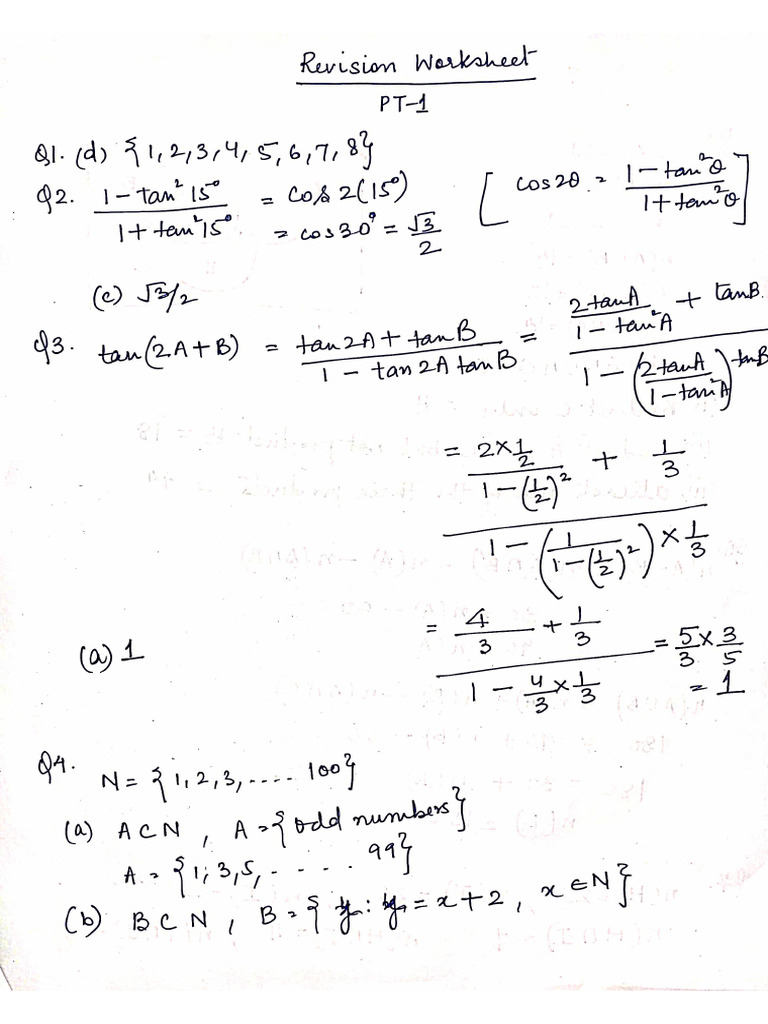 Revision Worksheet
PT-1
Q1. (d) {1, 2, 3, 4, 5, 6, 7, 8}
Q2. (1 - tan² 15°)/(1 + tan² 15°) = cos 2(15°) [cos2θ = (1 - tan²θ)/(1 + tan²θ)]
= cos 30° = √3/2
(c) √3/2
Q3. tan(2A+B) = (tan 2A + tan B)/(1 - tan 2A tan B) = (2tanA/(1 - tan²A) + tanB.)/(1 - (2tanA/(1 - tan²A)) tanB)
= ((2×1/2)/(1 - (1/2)²) + 1/3)/(1 - (1/(1 - (1/2)²)) × 1/3)
= (4/3 + 1/3)/(1 - 4/3 × 1/3) = 5/3 × 3/5
= 1
(a) 1
Q4. N = {1, 2, 3, .... 100}
(a) A ⊂ N , A = {odd numbers}
A = {1, 3, 5, - - - - 99}
(b) B ⊂ N , B = {y : y = x + 2, x ∈ N}